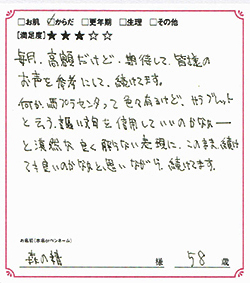 □お肌 ☑からだ □更年期 □生理 □その他
【満足度】★★★☆☆
毎月、高額だけど、期待して、皆様の
お声を参考にして、続けてます。
何か、馬プラセンタって色々有るけど、サラブレット
と云う、謳い文句を信用していいのかなァー
と漠然な良く解らない表現に、このまま、続け
ても良いのかなぁと、思いながら、続けてます。
お名前(本名orペンネーム)
森の精 様 58 歳